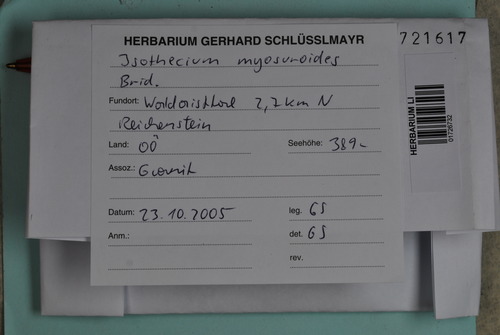 HERBARIUM GERHARD SCHLÜSSLMAYR
721617
Isothecium myosuroides
Brid.
Fundort: Waldaisttal 2,2 km N
Reichenstein
Land: OÖ Seehöhe: 389.-
Assoz.: Granit
Datum: 23.10.2005 leg. GS
Anm.: det. GS
rev.
HERBARIUM LI
01728732